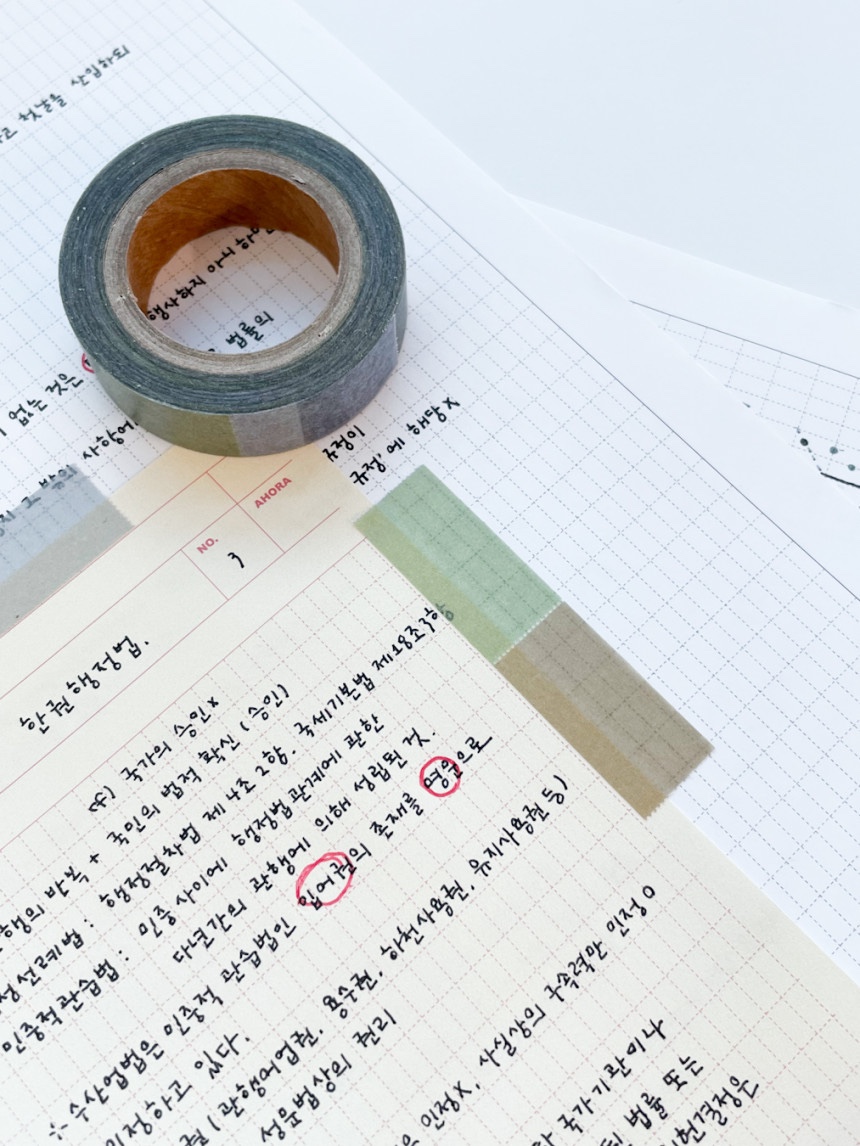 첫날을 산입하되
행사하지 아니 하
법률의
없는 것은
사항에
규정이
규정'에 해당x
AHORA
NO. 3
한권행정법.
cf) 국가의 승인x
행의 반복 + 국민의 법적 확신 (승인)
선례법 : 행정절차법 제4조 2항. 국세기본법 제18조 3항
민중적관습법 : 민중 사이에 행정법관계에 관한
다년간의 관행에 의해 성립된 것.
수산업법은 민중적 관습법인 입어권의 존재를 명문으로
인정하고 있다.
(관행어업권. 용수권. 하천사용권. 유지사용권 등)
성문법상의 권리
인정x, 사실상의 구속력만 인정o
국가기관이나
법률 또는
헌결정은